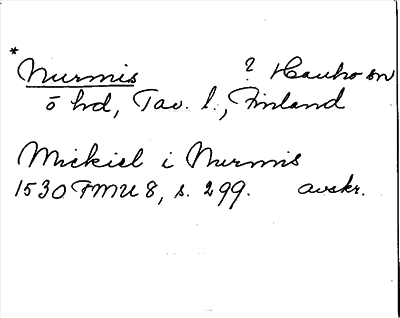 *
Nurmis ? Hauho sn
ö hd, Tav. l., Finland
Mickiel i Nurmis
1530 FMU 8, s. 299. avskr.